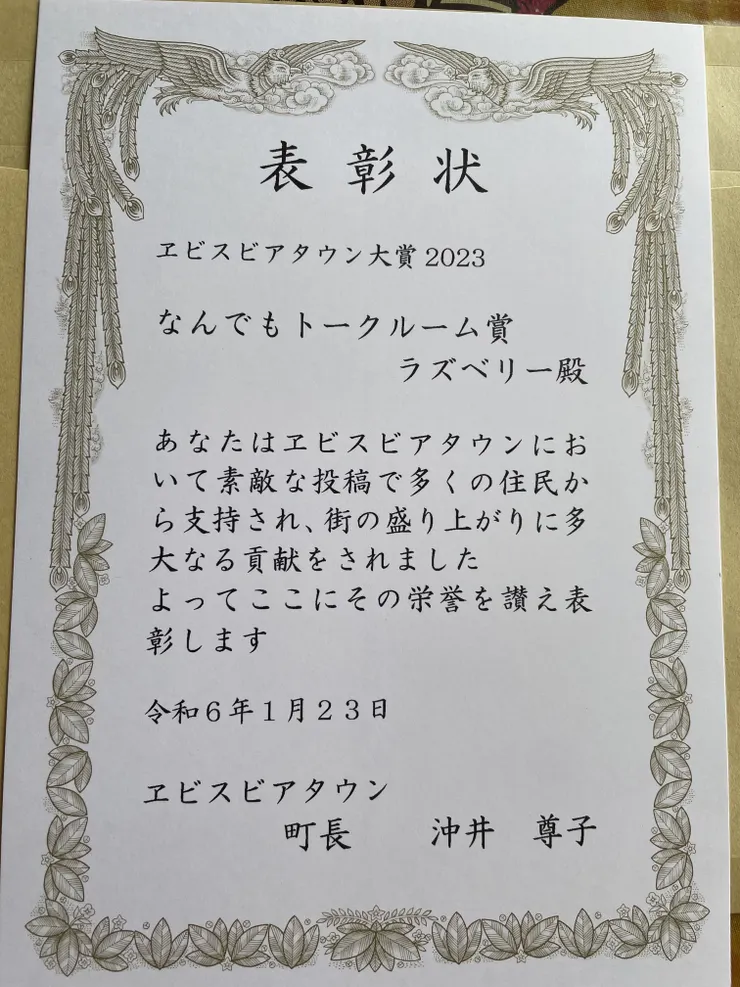 表彰状
ヱビスビアタウン大賞2023
なんでもトークルーム賞
ラズベリー殿
あなたはヱビスビアタウンにお
いて素敵な投稿で多くの住民か
ら支持され、街の盛り上がりに多
大なる貢献をされました
よってここにその栄誉を讃え表
彰します
令和6年1月23日
ヱビスビアタウン
町長 沖井 尊子